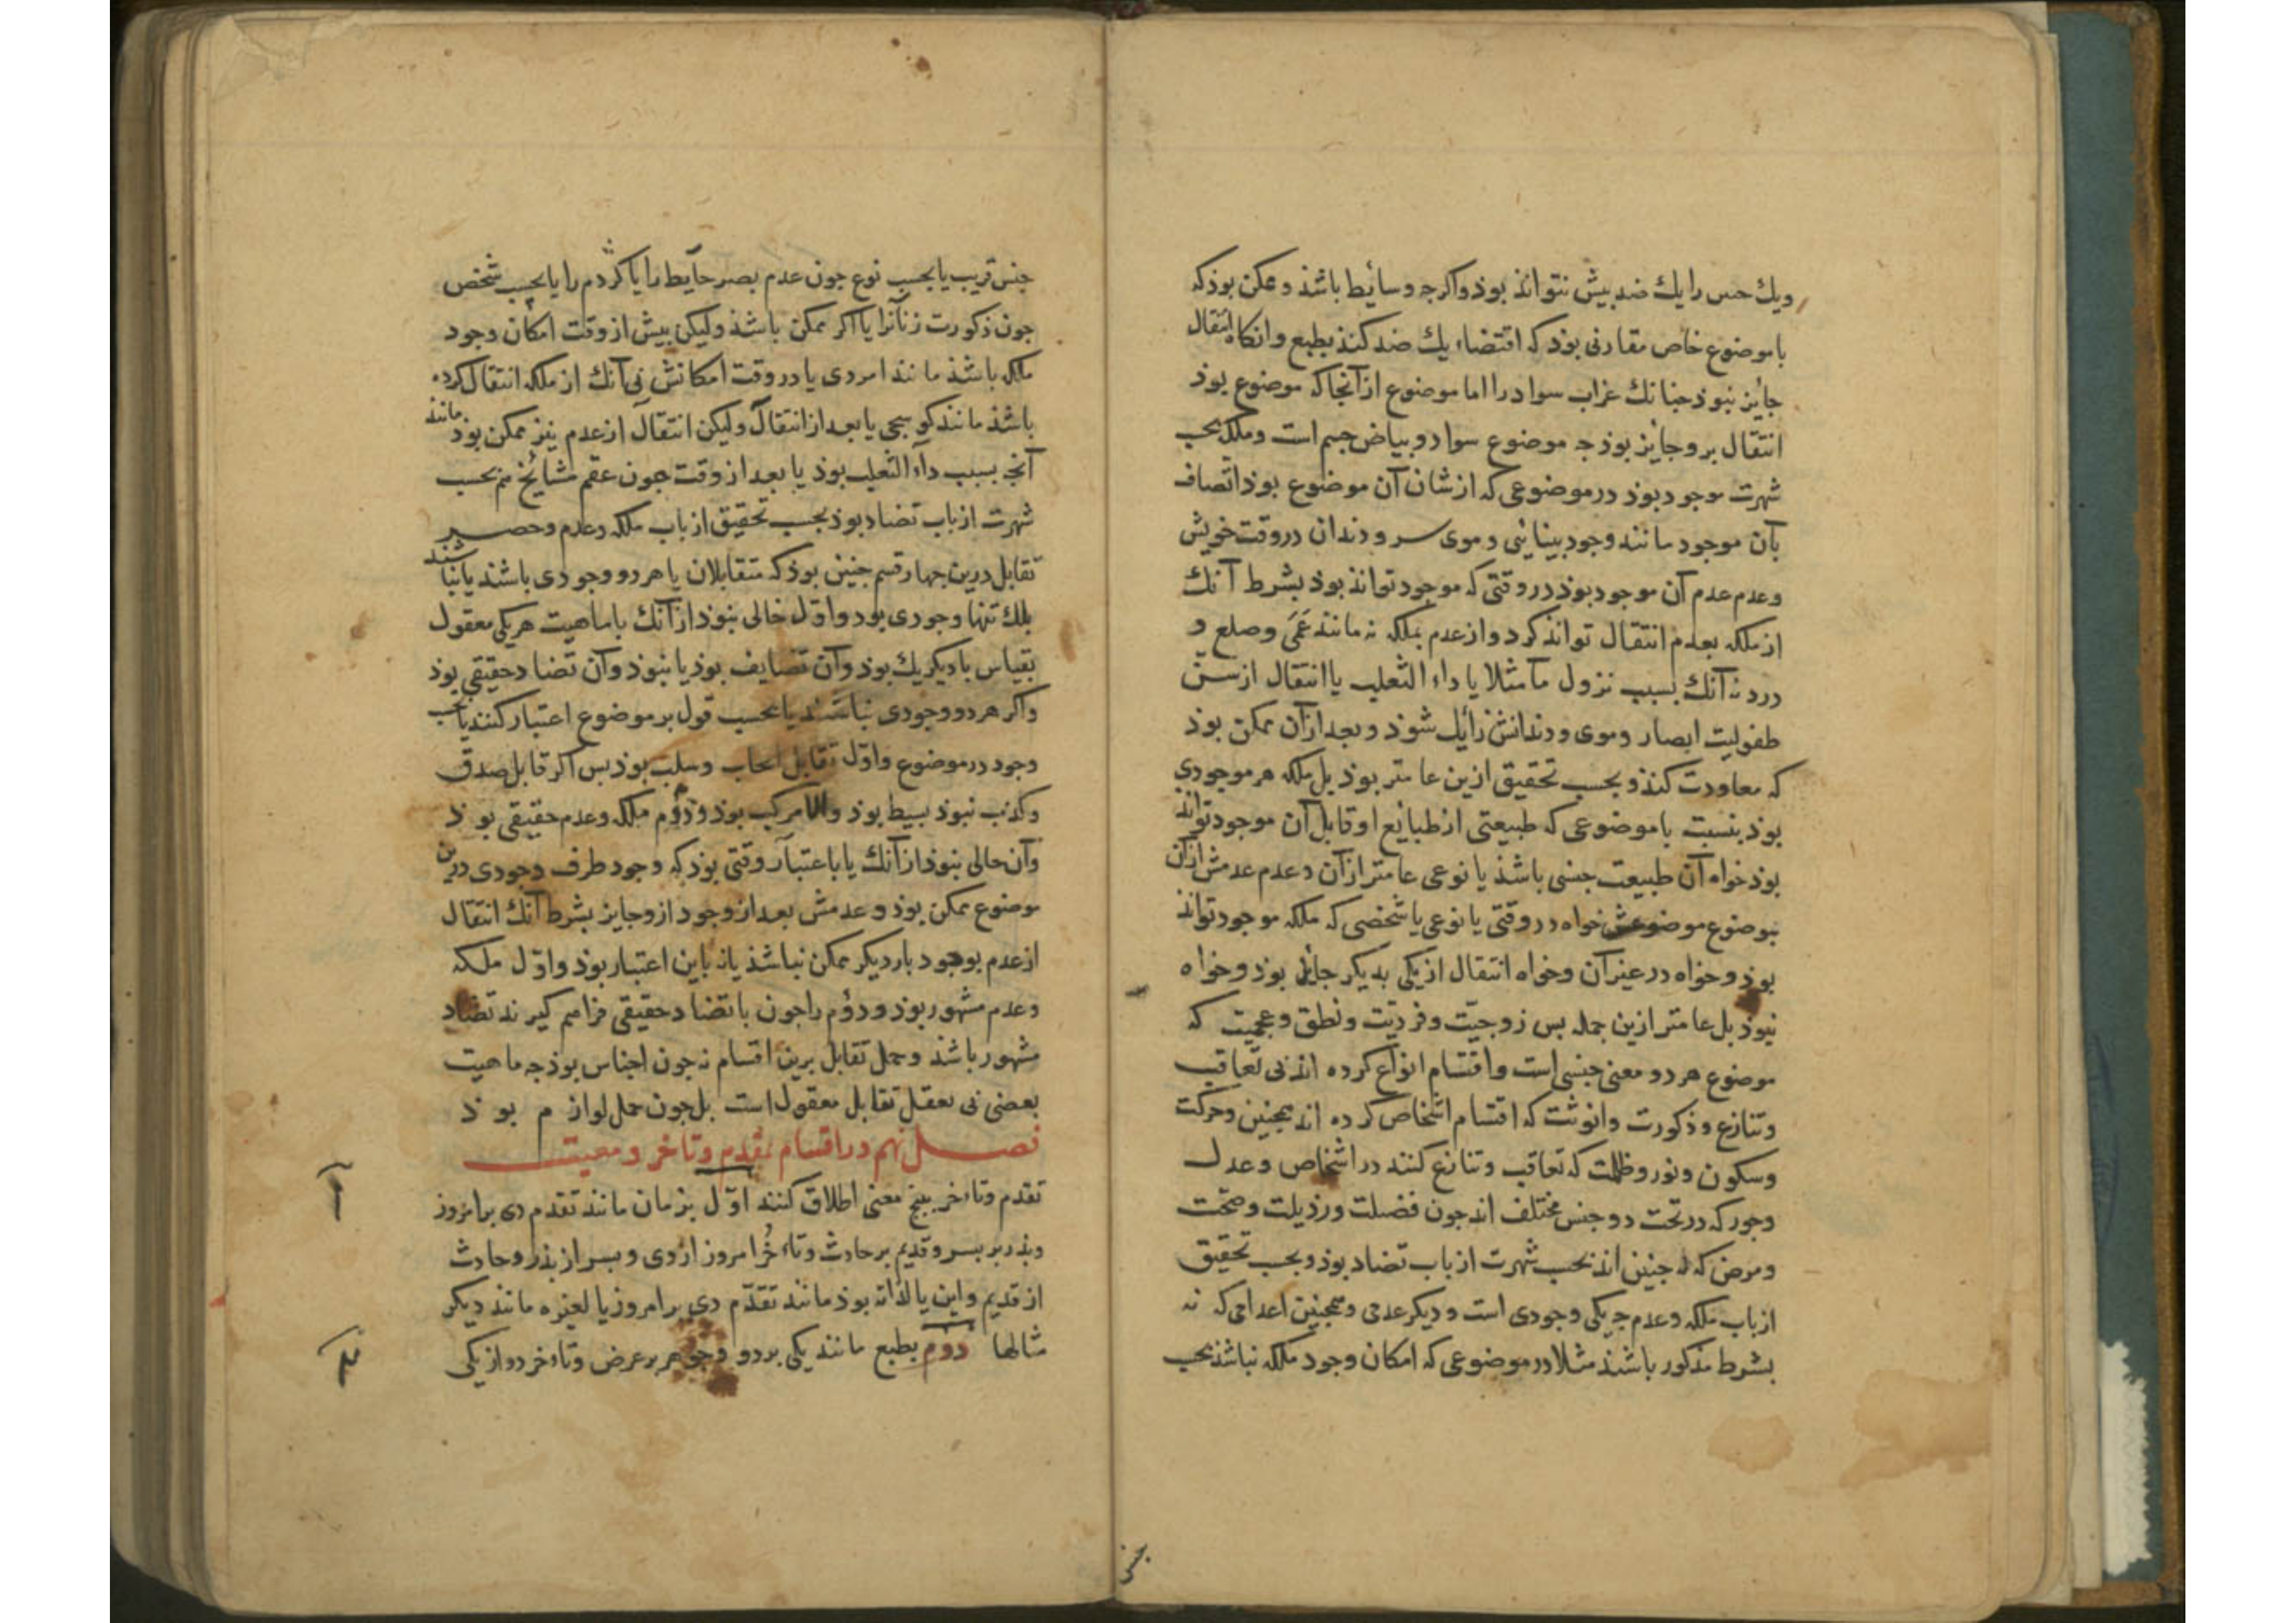 ویك حس را یك ضد بیش نتواند بوذ واكرجه وسائط باشذ و ممكن بوذ كه
با موضوع خاص مقارنی بوذ كه اقتضاء یك ضد كند بطبع وانكاه انتقال
جایز نبوذ جنانك غراب سواد را اما موضوع از آنجا كه موضوع بوذ
انتقال برو جایز بوذ جه موضوع سواد و بیاض جسم است وملكه بحسب
شهرت موجود بوذ در موضوعی كه از شان آن موضوع بوذ اتصاف
بآن موجود مانند وجود بینائی و موی سر و دندان در وقت خویش
وعدم عدم آن موجود بوذ در وقتی كه موجود تواند بوذ بشرط آنك
از ملكه بعدم انتقال تواند كرد و از عدم بملكه نه مانند عمی وصلع و
درد نه آنك بسبب نزول ما مثلا یا داء الثعلب یا انتقال از سن
طفولیت ابصار و موی و دندانش زایل شوذ و بعد از آن ممكن بوذ
كه معاودت كنذ و بحسب تحقیق ازین عامتر بوذ بل ملكه هر موجودی
بوذ بنسبت با موضوعی كه طبیعتی از طبایع او قابل آن موجود تواند
بوذ خواه آن طبیعت جنسی باشذ یا نوعی عامتر از آن و عدم عدمش از آن
موضوع خواه در وقتی یا نوعی یا شخصی كه ملكه موجود تواند
بوذ و خواه در غیر آن وخواه انتقال از یكی بدیكر جایز بوذ وخواه
نبوذ بل عامتر ازین جمله بس زوجیت وفردیت ونطق وعجمیت كه
موضوع هر دو معنی جنسی است واقتسام انواع كرده اند بی تعاقب
وتنازع وذكورت وانوثت كه اقتسام اشخاص كرده اند همجنین وحركت
وسكون ونور وظلمت كه تعاقب وتنازع كنند در اشخاص وعدل
وجور كه در تحت دو جنس مختلف اند جون فضیلت ورذیلت وصحت
ومرض كه نه جنین اند بحسب شهرت از باب تضاد بوذ وبحسب تحقیق
از باب ملكه وعدم جه یكی وجودی است ودیكر عدمی وهمجنین اعدامی كه نه
بشرط مذكور باشند مثلا در موضوعی كه امكان وجود ملكه نباشذ بحسب
جنسی
جنس قریب یا بحسب نوع جون عدم بصر حایط را یا كژدم را یا بحسب شخص
جون ذكورت زنانرا یا اكر ممكن باشذ ولیكن بیش از وقت امكان وجود
ملكه باشذ مانند امردی یا در وقت امكانش بی آنك از ملكه انتقال كرده
باشذ مانند كوسجی یا بعد از انتقال ولیكن انتقال از عدم نیز ممكن بوذ مانند
آنج بسبب داء الثعلب بوذ یا بعد از وقت جون عقم مشایخ هم بحسب
شهرت از باب تضاد بوذ بحسب تحقیق از باب ملكه وعدم وحصر
تقابل درین جهار قسم جنین بوذ كه متقابلان یا هر دو وجودی باشند یا نباشند
بلك تنها وجودی بود واول خالی نبوذ از آنك یا ماهیت هر یكی معقول
بقیاس با دیكریك بوذ وآن تضایف بوذ یا نبوذ وآن تضاد حقیقی بوذ
واكر هر دو وجودی نباشند یا بحسب قول بر موضوع اعتبار كنند یا بحسب
وجود در موضوع واول تقابل ایجاب وسلب بوذ بس اكر قابل صدق
وكذب نبوذ بسیط بوذ والا مركب بوذ ودوم ملكه وعدم حقیقی بوذ
وآن خالی نبوذ از آنك یا باعتبار وقتی بوذ كه وجود طرف وجودی درین
موضوع ممكن بوذ وعدمش بعد از وجود ازو جایز بشرط آنك انتقال
از عدم بوجود بار دیكر ممكن نباشذ یا نه باین اعتبار بوذ واول ملكه
وعدم مشهور بوذ ودوم را جون با تضاد حقیقی فراهم كیرند تضاد
مشهور باشذ وحمل تقابل برین اقسام نه جون اجناس بوذ جه ماهیت
بعضی بی تعقل تقابل معقول است بل جون حمل لوازم بوذ
فصل نهم در اقسام تقدم وتاخر ومعیت
تقدم وتاخر ببنج معنی اطلاق كنند اول بزمان مانند تقدم دی بر امروز
وبذر بر بسر وقدیم بر حادث وتاخر امروز از دی وبسر از بذر وحادث
از قدیم واین یا لذاته بوذ مانند تقدم دی بر امروز یا لغیره مانند دیكر
مثالها دوم بطبع مانند یكی بر دو وجوهر بر عرض وتاخر دو از یكی